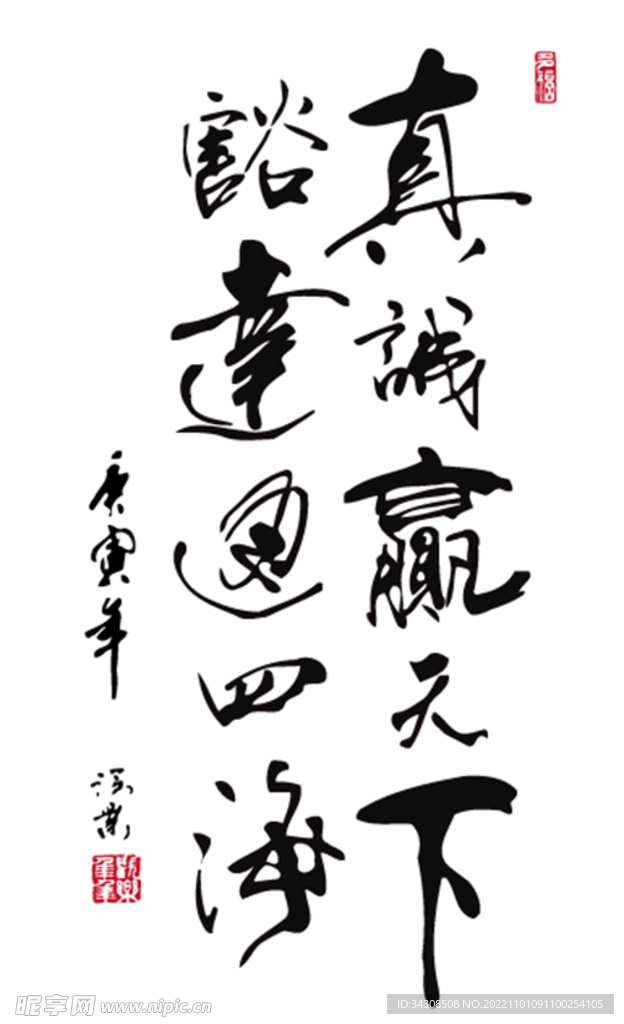 真誠贏天下
豁達通四海
庚寅年
多福
昵享网 www.nipic.cn
ID:34308508 NO:20221101091100254105